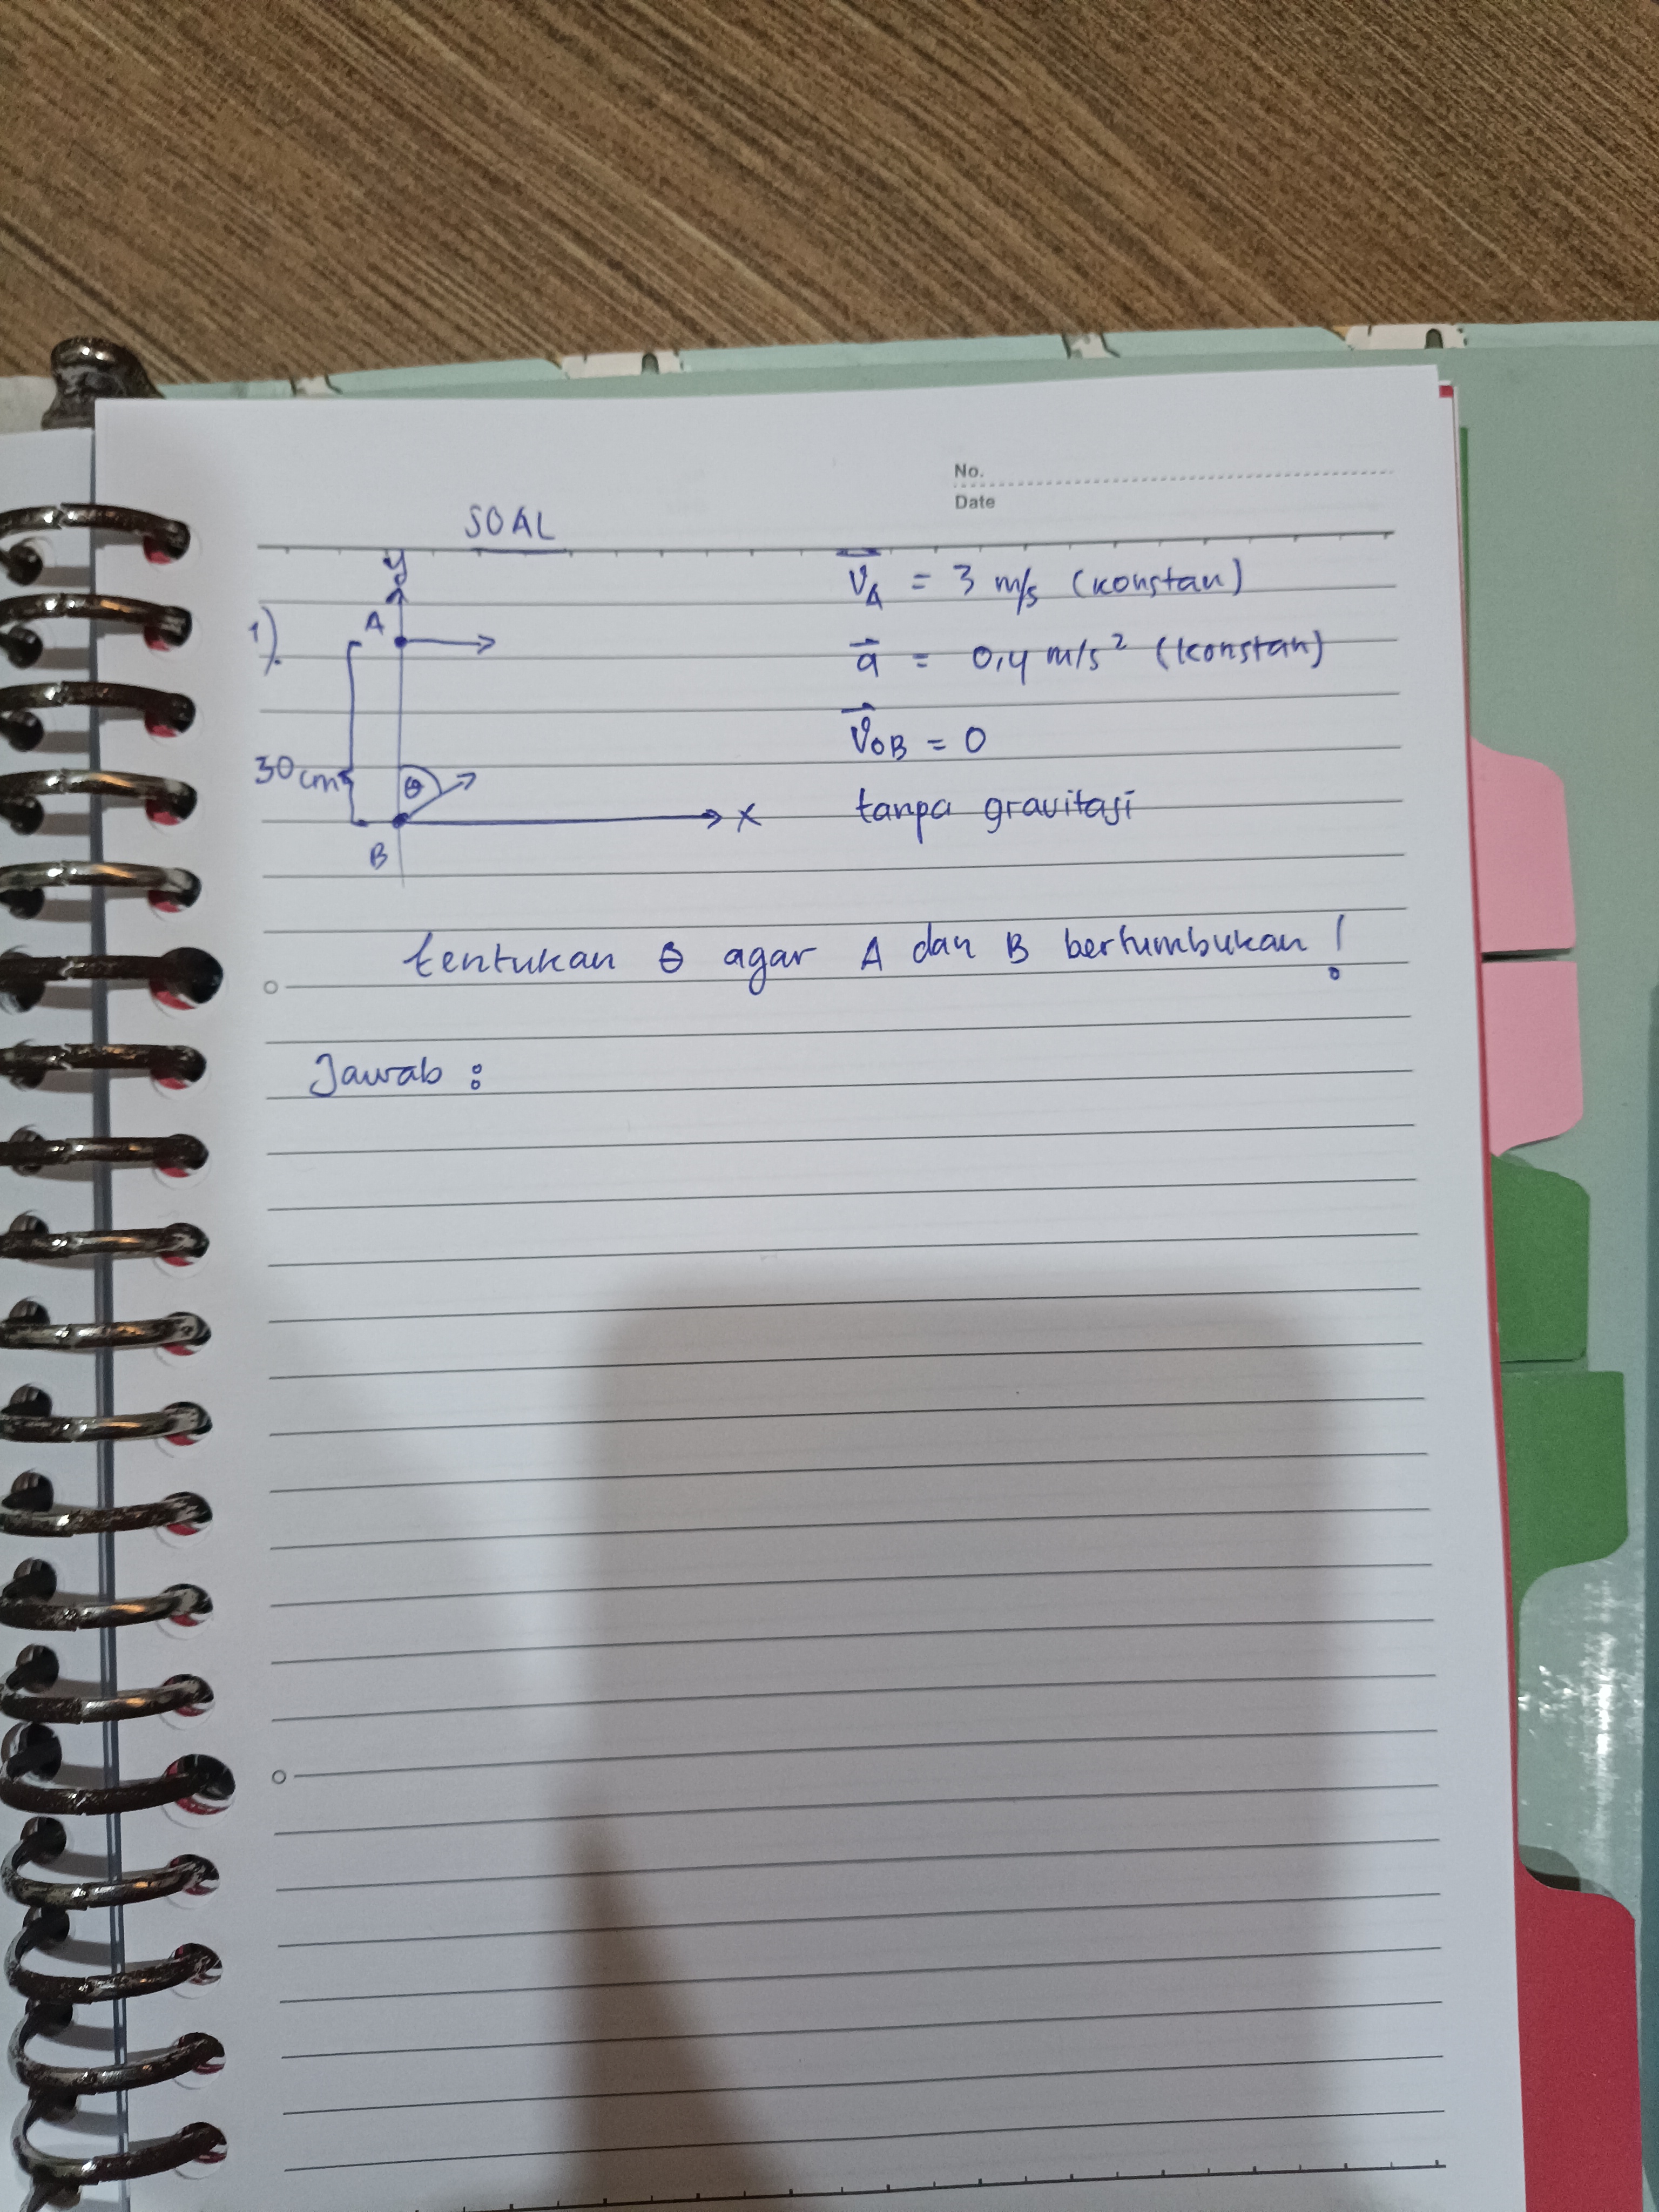 No.
Date
SOAL
y
1).
A
30 cm
θ
x
B
v⃗A = 3 m/s (konstan)
a⃗ = 0,4 m/s² (konstan)
v⃗OB = 0
tanpa gravitasi
tentukan θ agar A dan B bertumbukan !
Jawab :